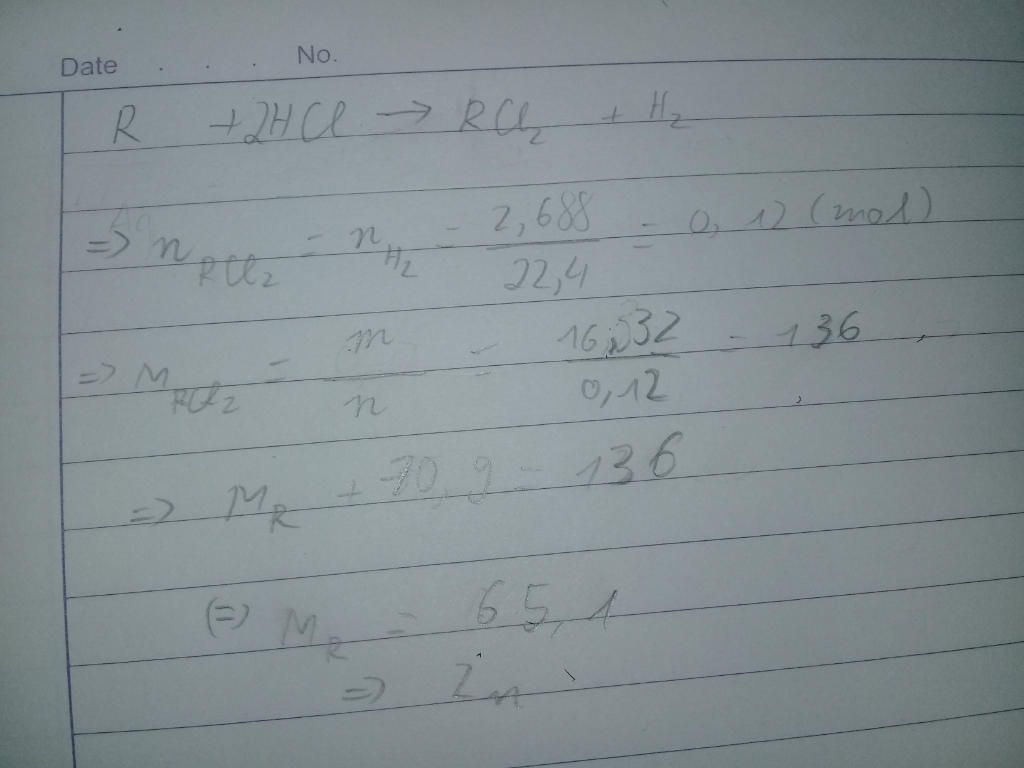 Date . . . No.
R + 2HCl → RCl₂ + H₂
=> n RCl₂ = n H₂ = 2,688 / 22,4 = 0,12 (mol)
=> M RCl₂ = m / n = 16,332 / 0,12 = 136
=> M R + 70,9 = 136
(=) M R = 65,1
=> Zn